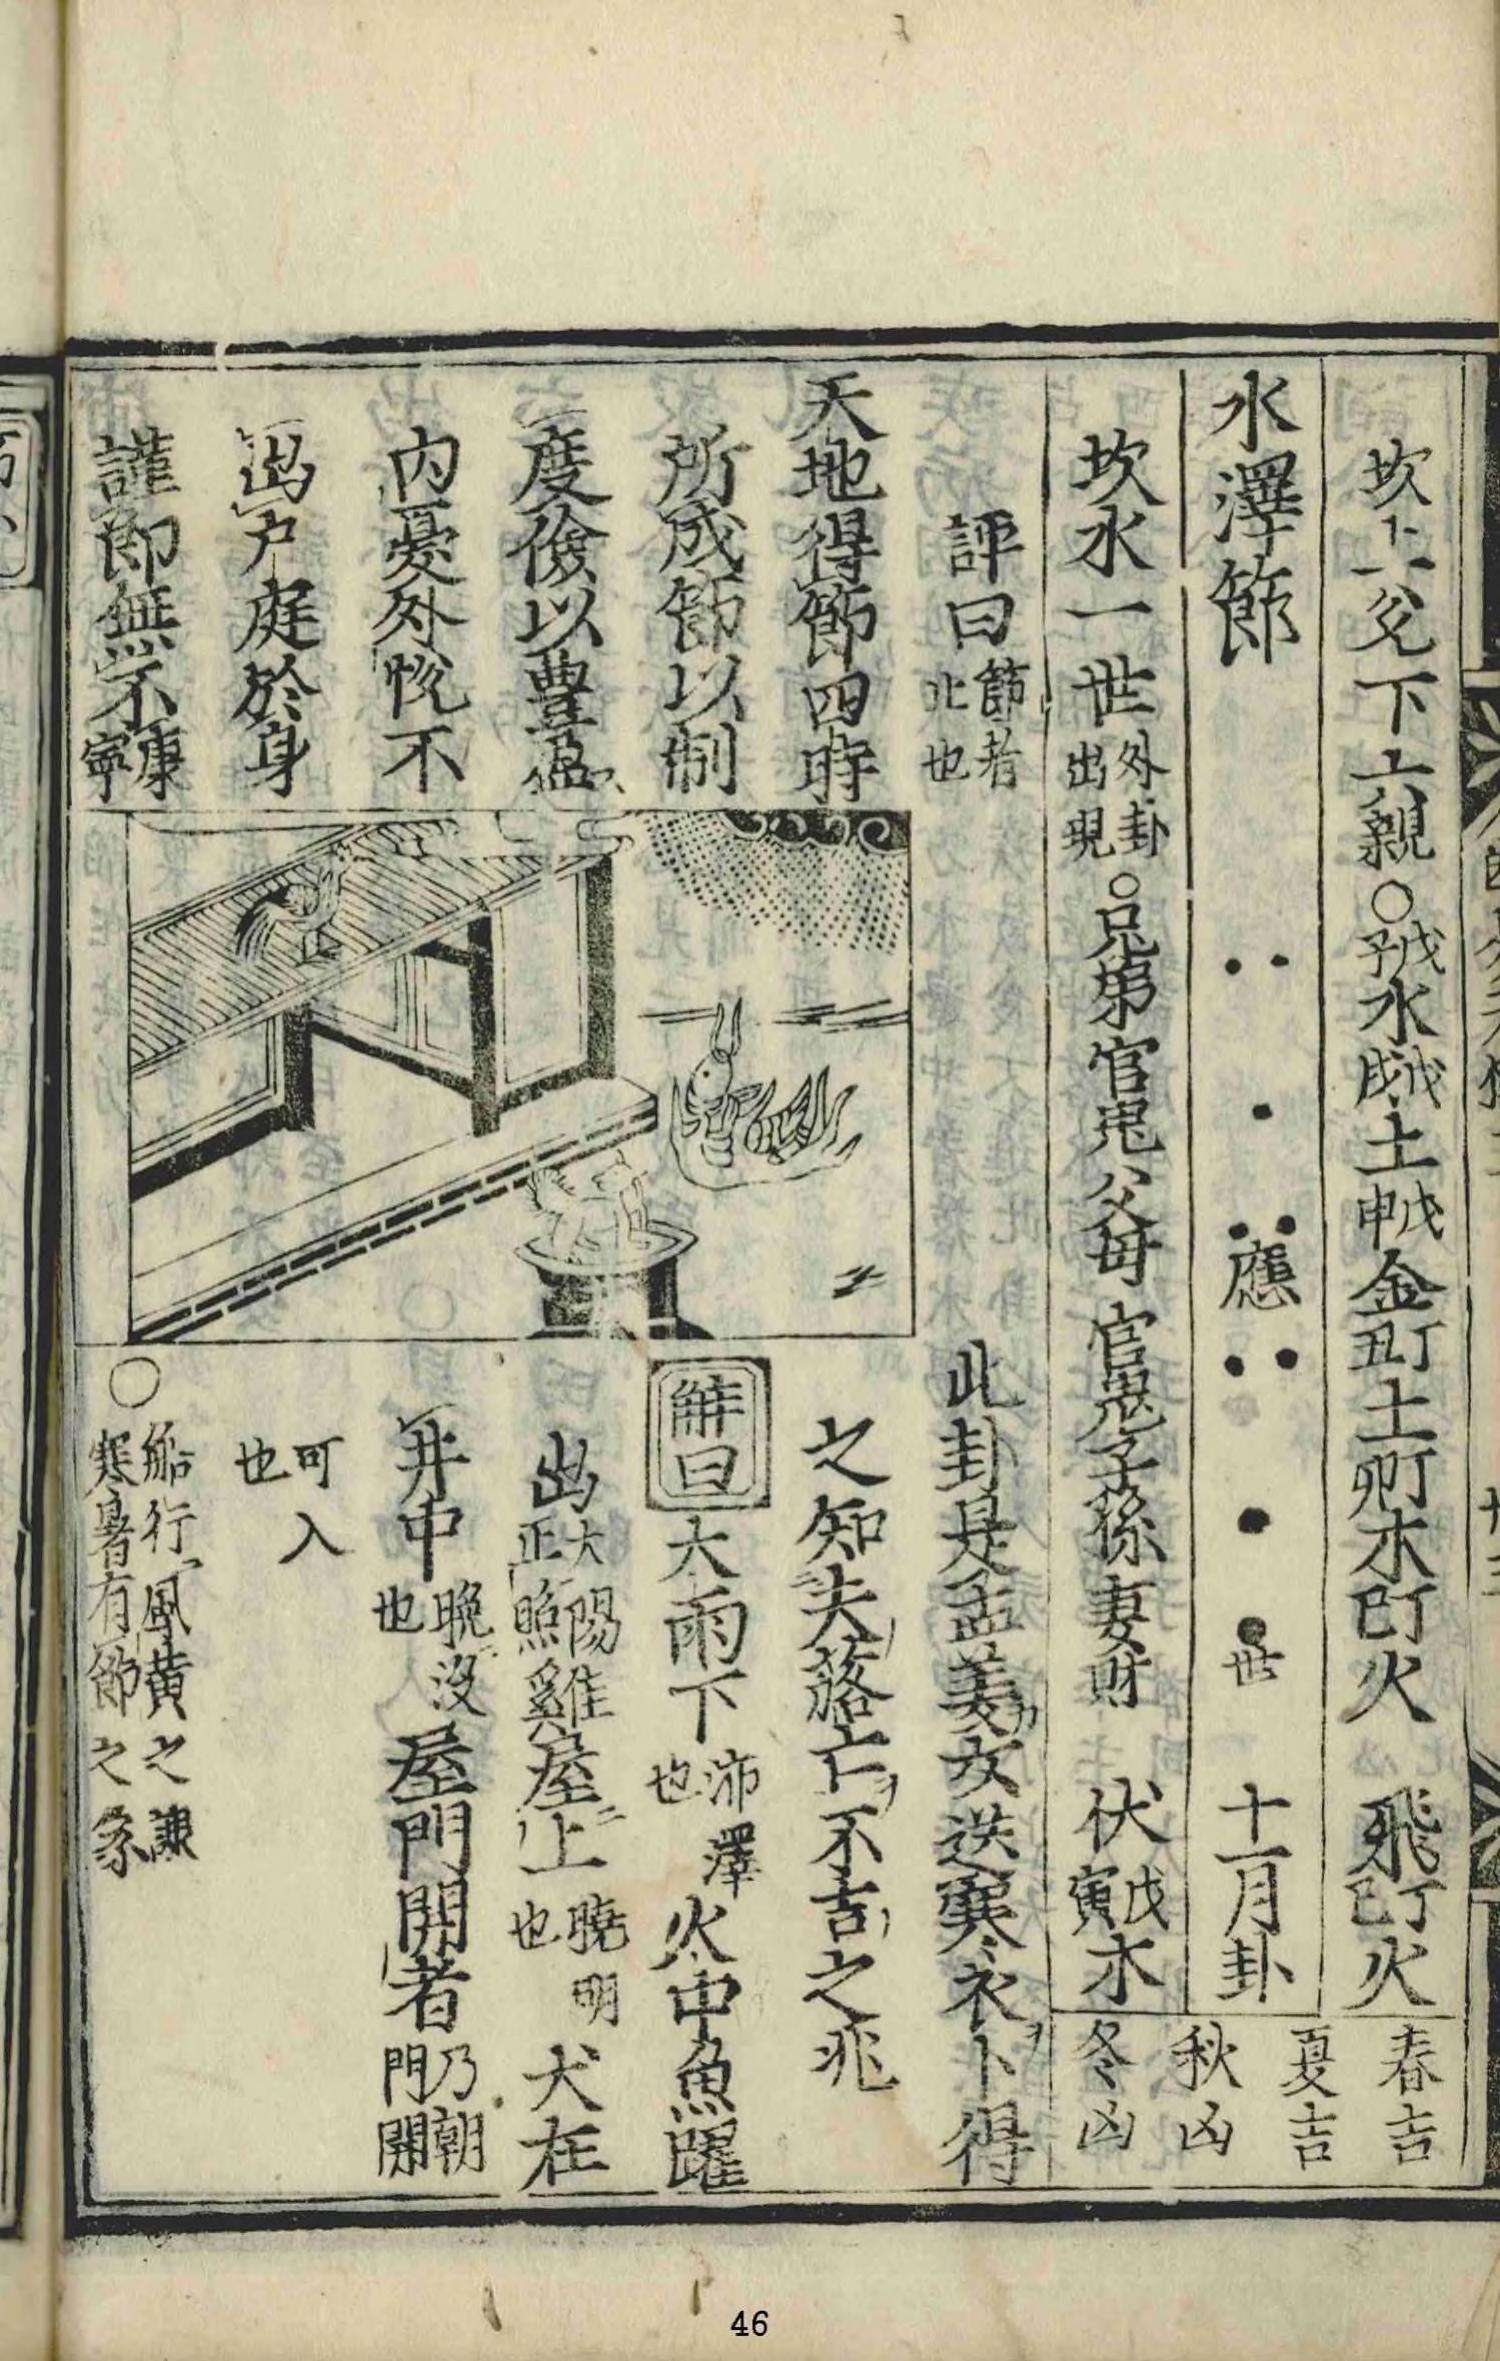 坎上兌下六親○戊子水戊戌土戊申金丁丑土丁卯木丁巳火　飛丁巳火
水澤節　應　世　十一月卦
坎水一世外卦出現○兄弟官鬼父母　官鬼子孫妻財　伏戊寅木
春吉
夏吉
秋凶
冬凶
評曰節者止也
天地得節四時
所成節以制
度儉以豊盈
内憂外悅不
出户庭於身
謹節無不康寧
此卦是孟姜女送寒衣卜得
之知失落亡不吉之兆
解曰大雨下沛澤也火中魚躍
出大陽正照雞屋上曉明也犬在
井中晚没也屋門開者乃朝門開
可入也
○船行風黄之謙寒暑有節之象
46